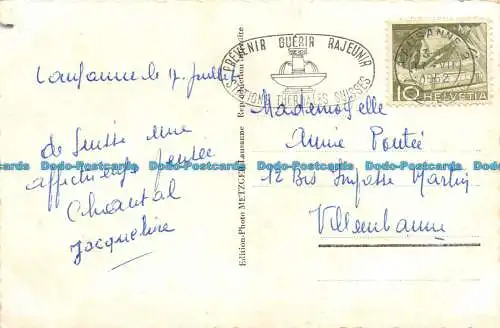 Lausanne le 17 juillet
de Suisse une
affectueuse pensée
Chantal
Jacqueline
Edition-Photo METZGER, Lausanne Reproduction interdite
PRÉVENIR GUÉRIR RAJEUNIR
STATIONS THERMALES SUISSES
LAUSANNE 2
10 HELVETIA
Mademoiselle
Annie Poutée
12 Bis Impasse Martin
Villeurbanne
Dodo-Postcards Dodo-Postcards Dodo-Postcards Dodo-Postcards
Dodo-Postcards Dodo-Postcards Dodo-Postcards Dodo-Postcards